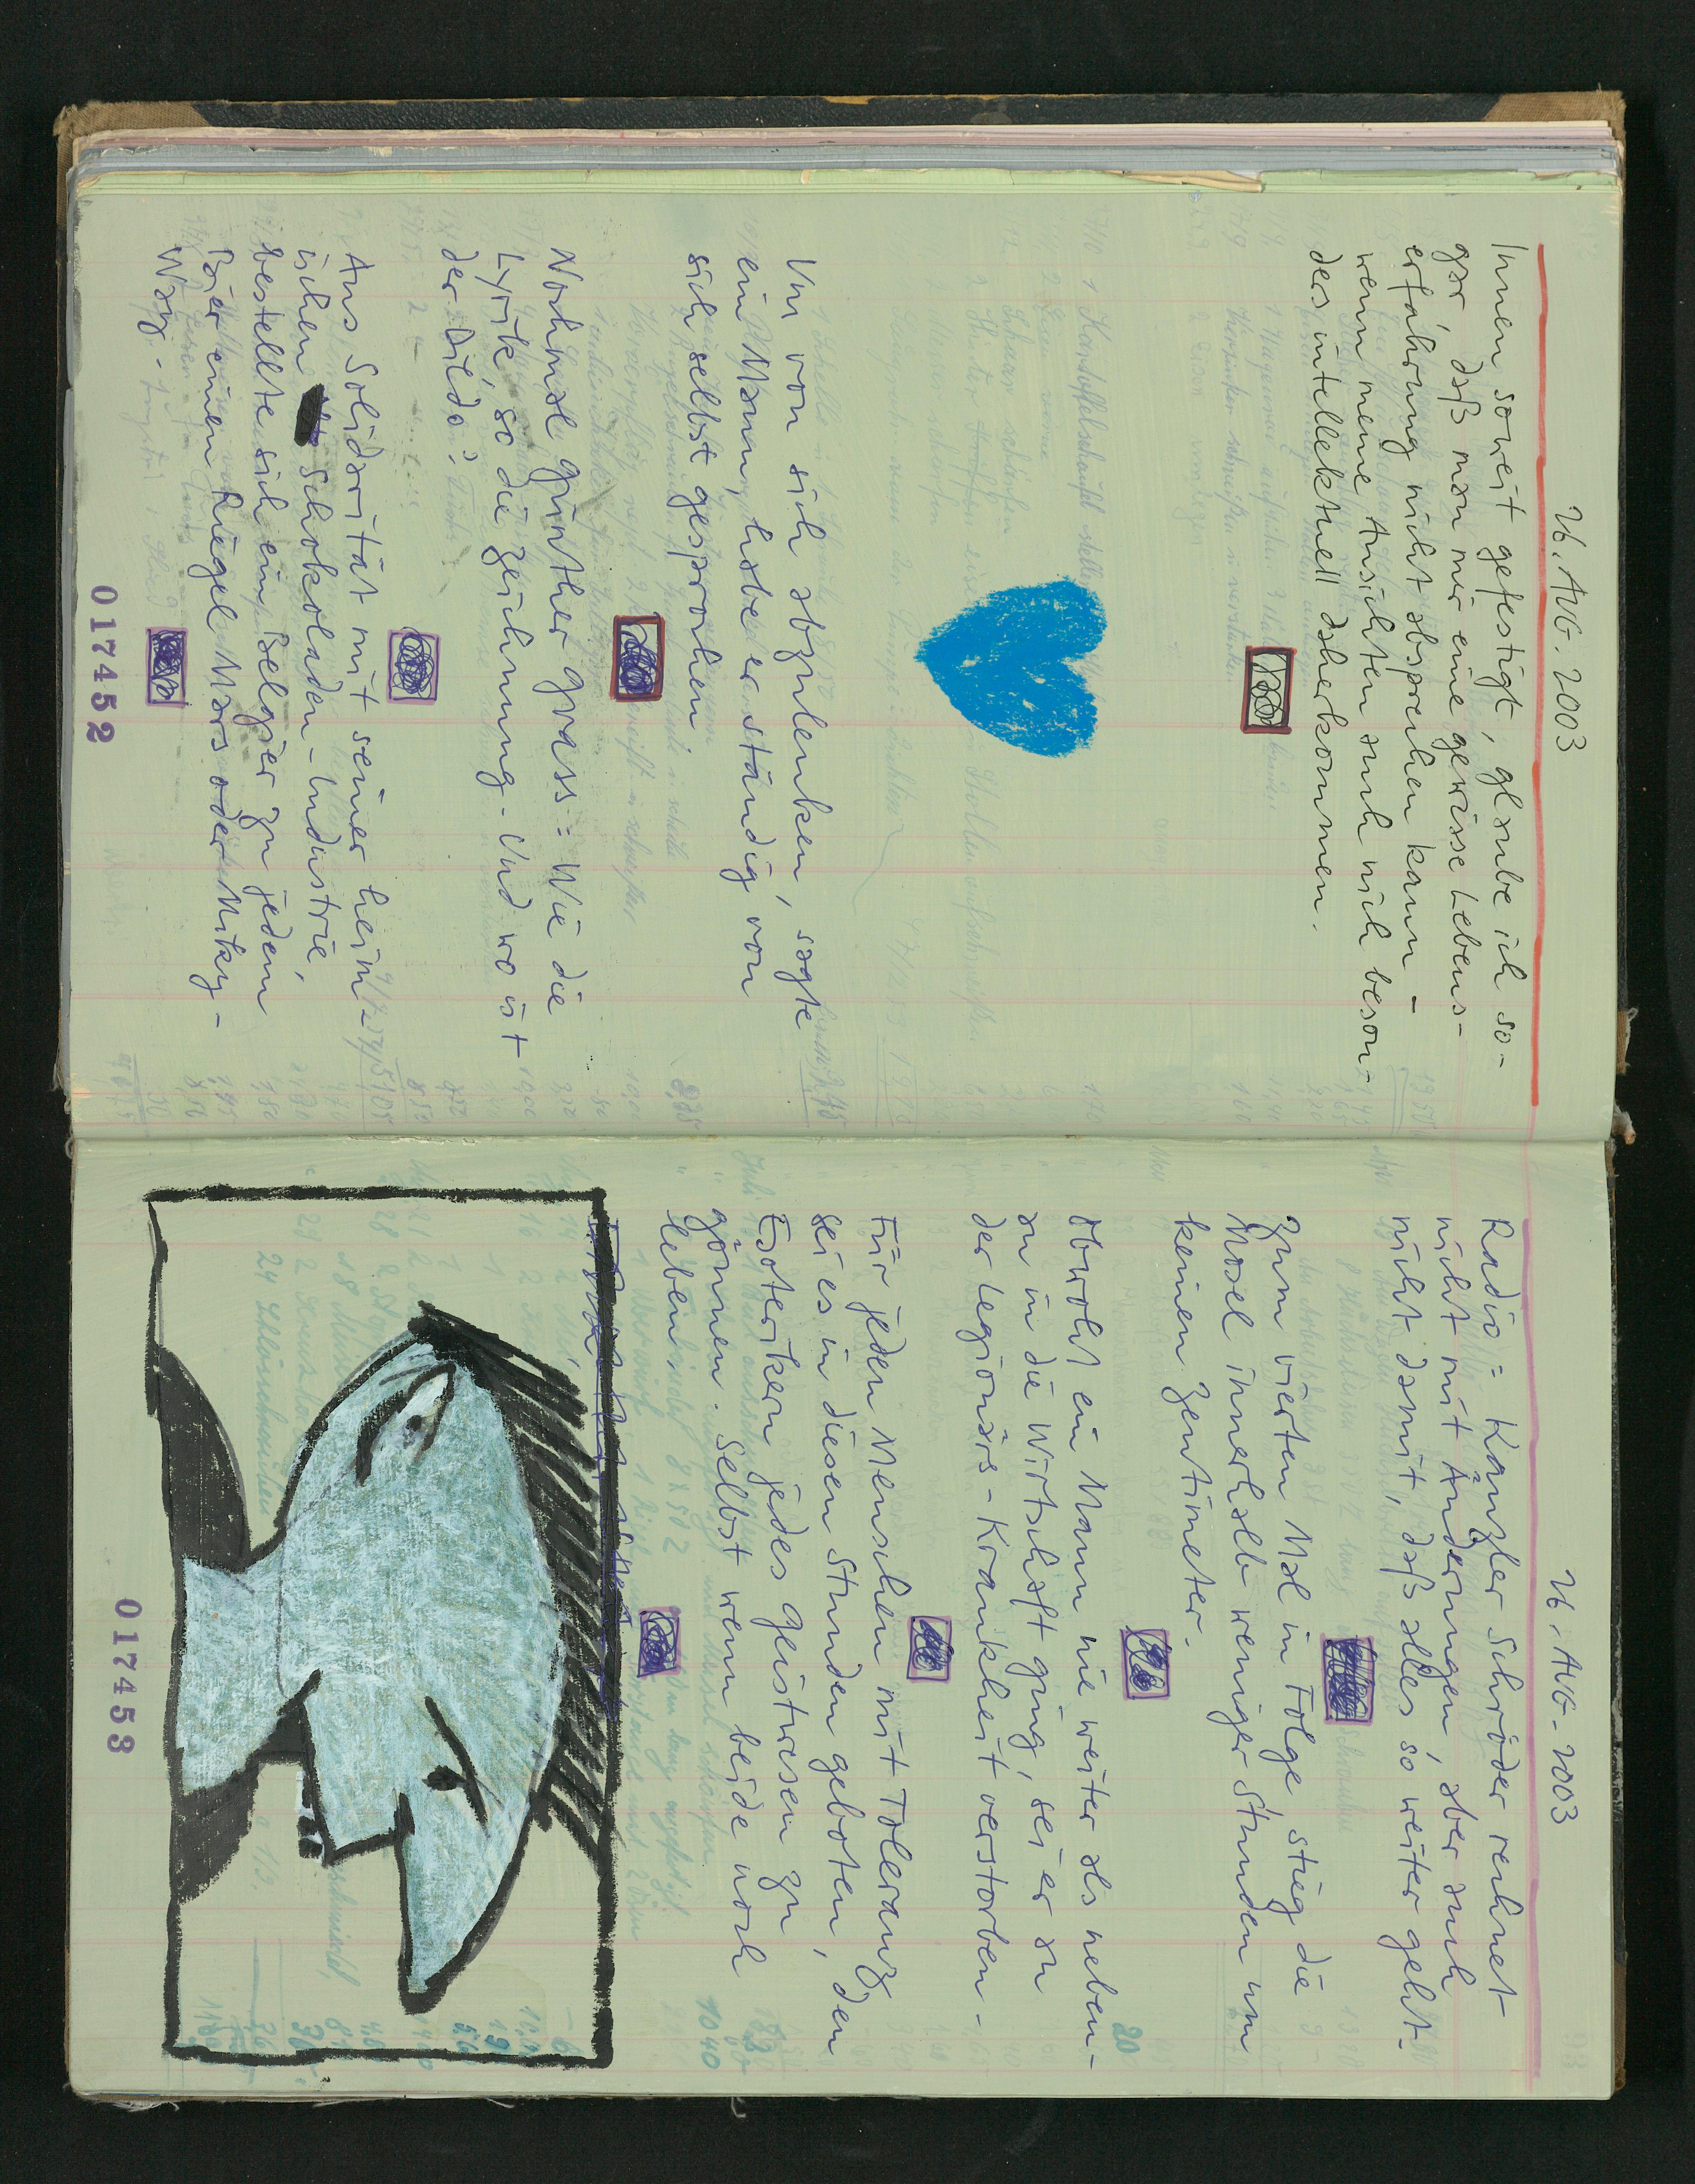 26. AUG. 2003
Innen soweit gefestigt, glaube ich so-
gar, daß man mir eine gewisse Lebens-
erfahrung nicht absprechen kann -
wenn meine Ansichten auch nich beson-
ders intellektuell daherkommen.
Um von sich abzulenken, sagte
ein Mann, habe er ständig von
sich selbst gesprochen
Nochmal Günther Grass: Wie die
Lyrik, so die Zeichnung - Und wo ist
der Dildo?
Aus Solidarität mit seiner heim-
ischen Schokoladen-Industrie,
bestellte sich ein Belgier zu jedem
Bier einen Riegel Mars oder Milky-
Way -
017452
26. AUG. 2003
Radio: Kanzler Schröder rechnet
nicht mit Änderungen, aber auch
nicht damit, daß alles so weiter geht.
Zum vierten Mal in Folge, stieg die
Mosel innerhalb weniger Stunden um
keinen Zentimeter.
Obwohl ein Mann nie weiter als neben-
an in die Wirtschaft ging, sei er an
der Legionärs-Krankheit verstorben -
Für jeden Menschen mit Toleranz,
sei es in diesen Stunden geboten, den
Esoterikern jedes Geistwesen zu
gönnen. Selbst wenn beide noch
leben
017453